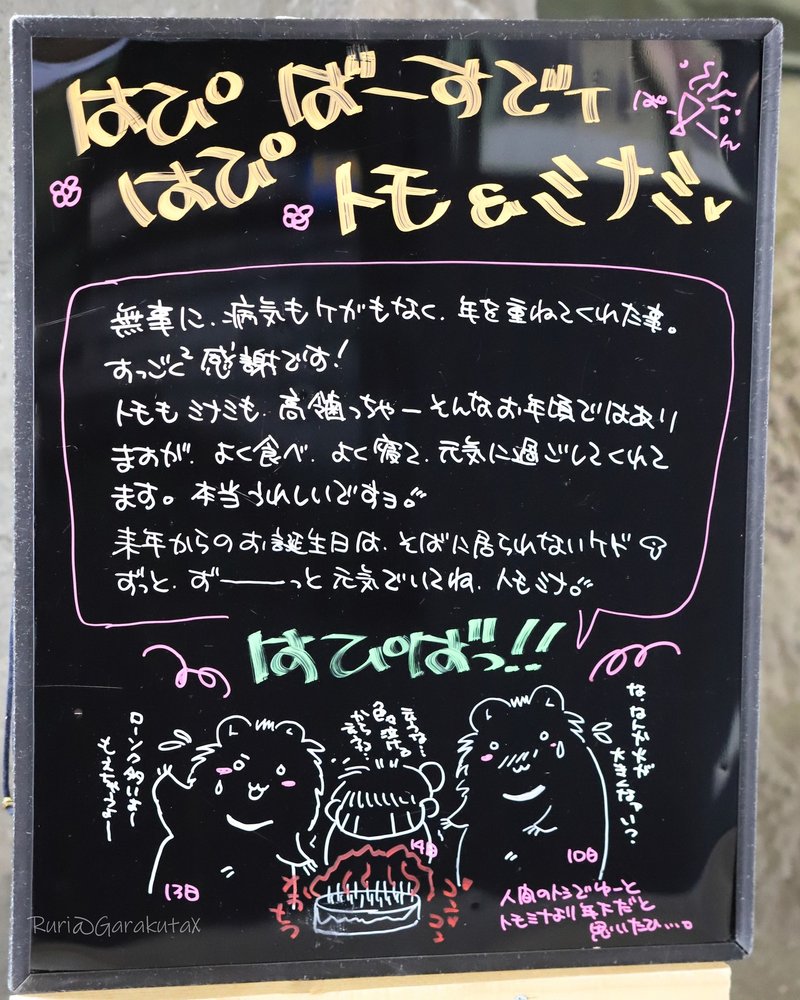 はぴ ばーすでぃ
ぱ ん
はぴ トモ&ミナミ
無事に、病気もケガもなく、年を重ねてくれた事。
すっごく感謝です!
トモも ミナミも、高齢っちゃーそんなお年頃ではあり
ますが、よく食べ、よく寝て、元気に過ごしてくれて
ます。本当うれしいですョ。
来年からのお誕生日は、そばに居られないケド
ずっと、ずーーーっと 元気でいてね、トモミナ。
はぴばっ!!
な、なんか火が
大きくない?
ローソク多いよー
もえすぎるー
14日
10日
13日
人間のトシでゆーと
トモミナより年下だと
思いたひ…。
Ruri@GarakutaX